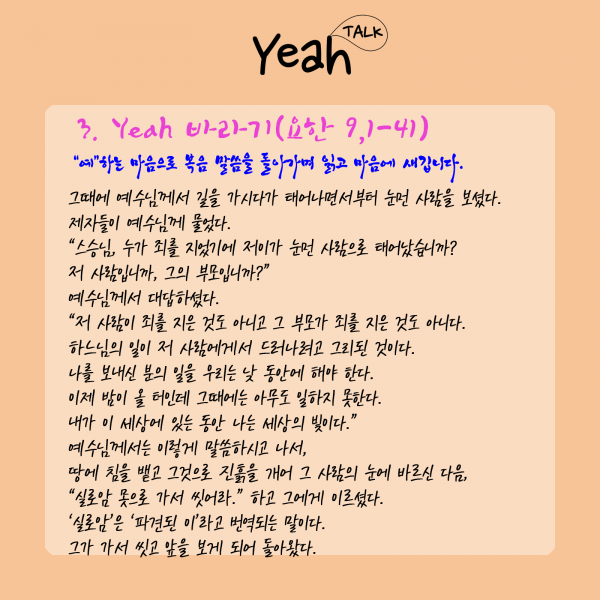 Yeah TALK
3. Yeah 바라기(요한 9,1-41)
"예"하는 마음으로 복음 말씀을 돌아가며 읽고 마음에 새깁니다.
그때에 예수님께서 길을 가시다가 태어나면서부터 눈먼 사람을 보셨다.
제자들이 예수님께 물었다.
"스승님, 누가 죄를 지었기에 저이가 눈먼 사람으로 태어났습니까?
저 사람입니까, 그의 부모입니까?"
예수님께서 대답하셨다.
"저 사람이 죄를 지은 것도 아니고 그 부모가 죄를 지은 것도 아니다.
하느님의 일이 저 사람에게서 드러나려고 그리된 것이다.
나를 보내신 분의 일을 우리는 낮 동안에 해야 한다.
이제 밤이 올 터인데 그때에는 아무도 일하지 못한다.
내가 이 세상에 있는 동안 나는 세상의 빛이다."
예수님께서는 이렇게 말씀하시고 나서,
땅에 침을 뱉고 그것으로 진흙을 개어 그 사람의 눈에 바르신 다음,
"실로암 못으로 가서 씻어라." 하고 그에게 이르셨다.
'실로암'은 '파견된 이'라고 번역되는 말이다.
그가 가서 씻고 앞을 보게 되어 돌아왔다.